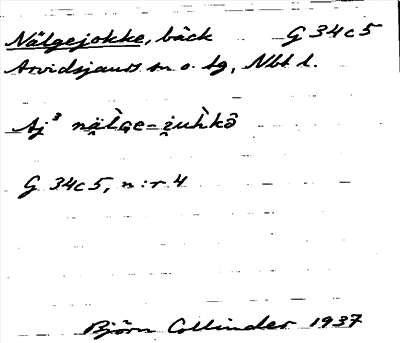 Nälgejokke, bäck G 34c5
Arvidsjaurs sn o. tg, Nbt l.
Aj³ nä̮l̀ge-i̮uh̀kô
G 34c5, n:r 4
Björn Collinder 1937